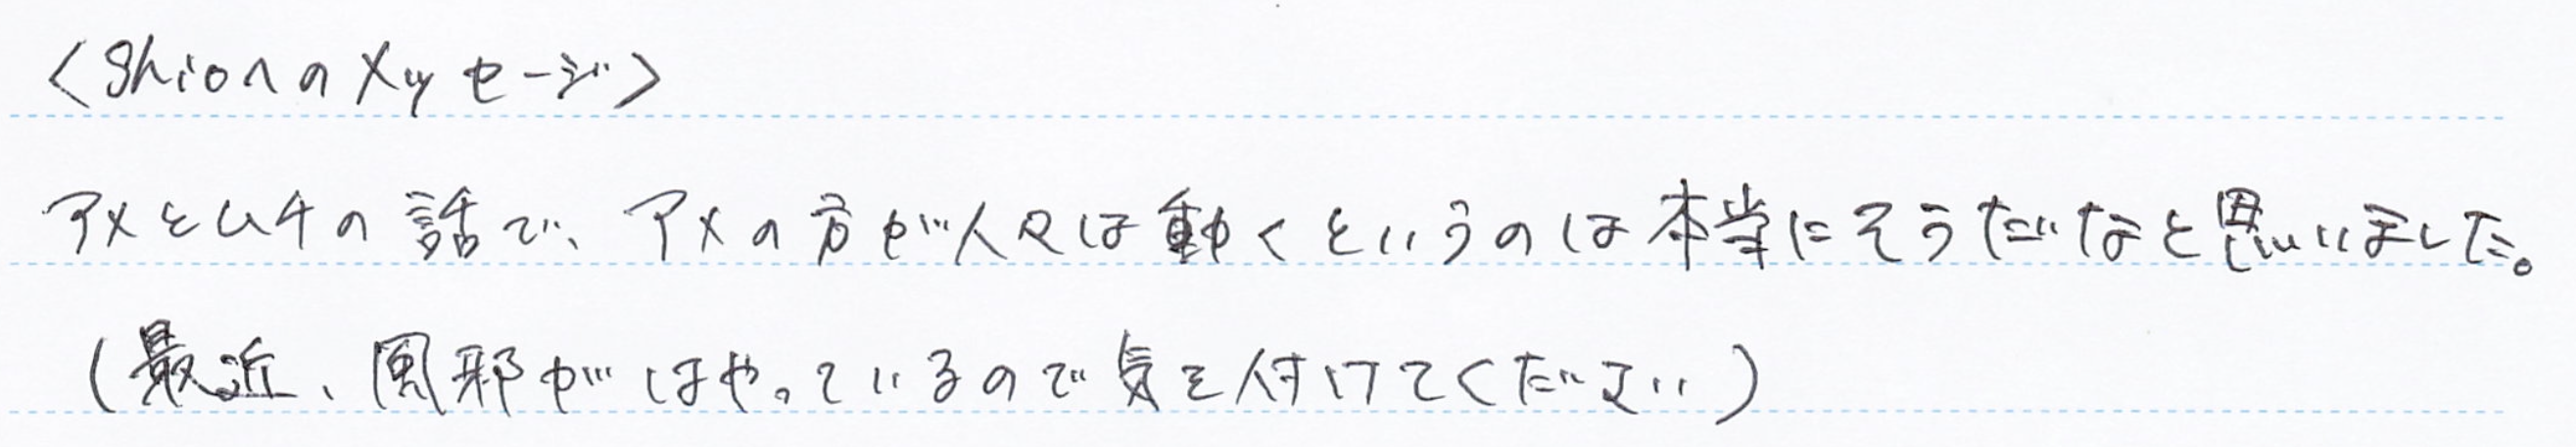 <Shionへのメッセージ>
アメとムチの話で、アメの方が人々は動くというのは本当にそうだなと思いました。
(最近、風邪がはやっているので気を付けてください)